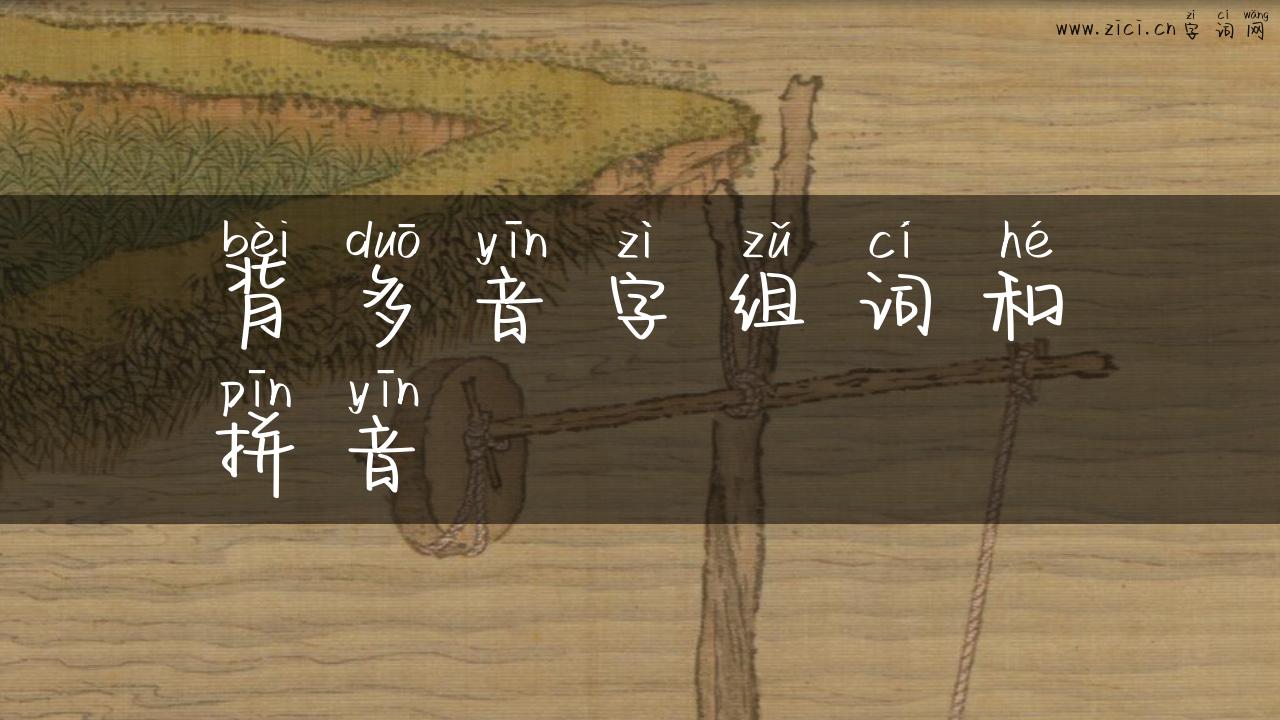 zì cí wǎng
www.zici.cn 字词网
bèi duō yīn zì zǔ cí hé
背多音字组词和
pīn yīn
拼音